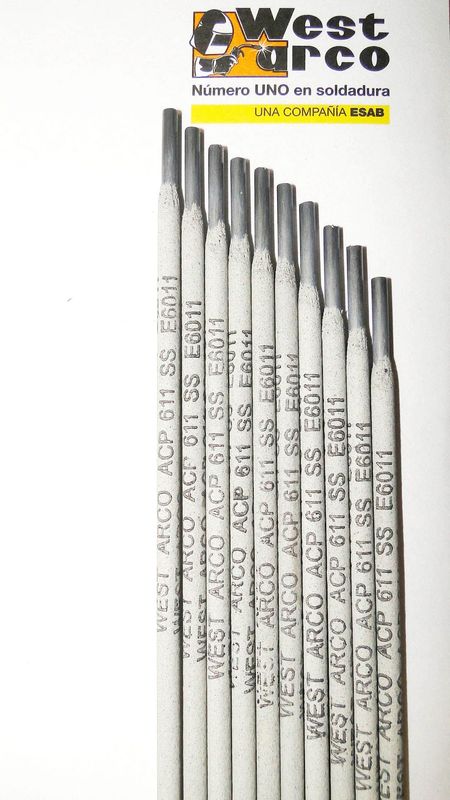 West
arco
Número UNO en soldadura
UNA COMPAÑÍA ESAB
WEST ARCO ACP 611 SS E6011
WEST ARCO ACP 611 SS E6011
WEST ARCO ACP 611 SS E6011
WEST ARCO ACP 611 SS E6011
WEST ARCO ACP 611 SS E6011
WEST ARCO ACP 611 SS E6011
WEST ARCO ACP 611 SS E6011
WEST ARCO ACP 611 SS E6011
WEST ARCO ACP 611 SS E6011
WEST ARCO ACP 611 SS E6011